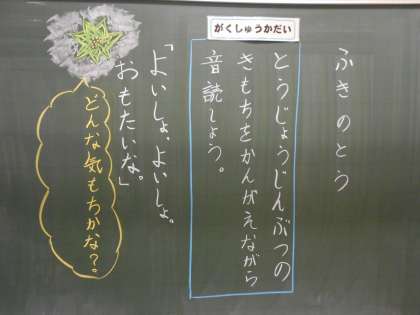 ふきのとう
がくしゅうかだい
とうじょうじんぶつの
きもちをかんがえながら
音読しよう。
「よいしょ、よいしょ。
おもたいな。」
どんな気もちかな?